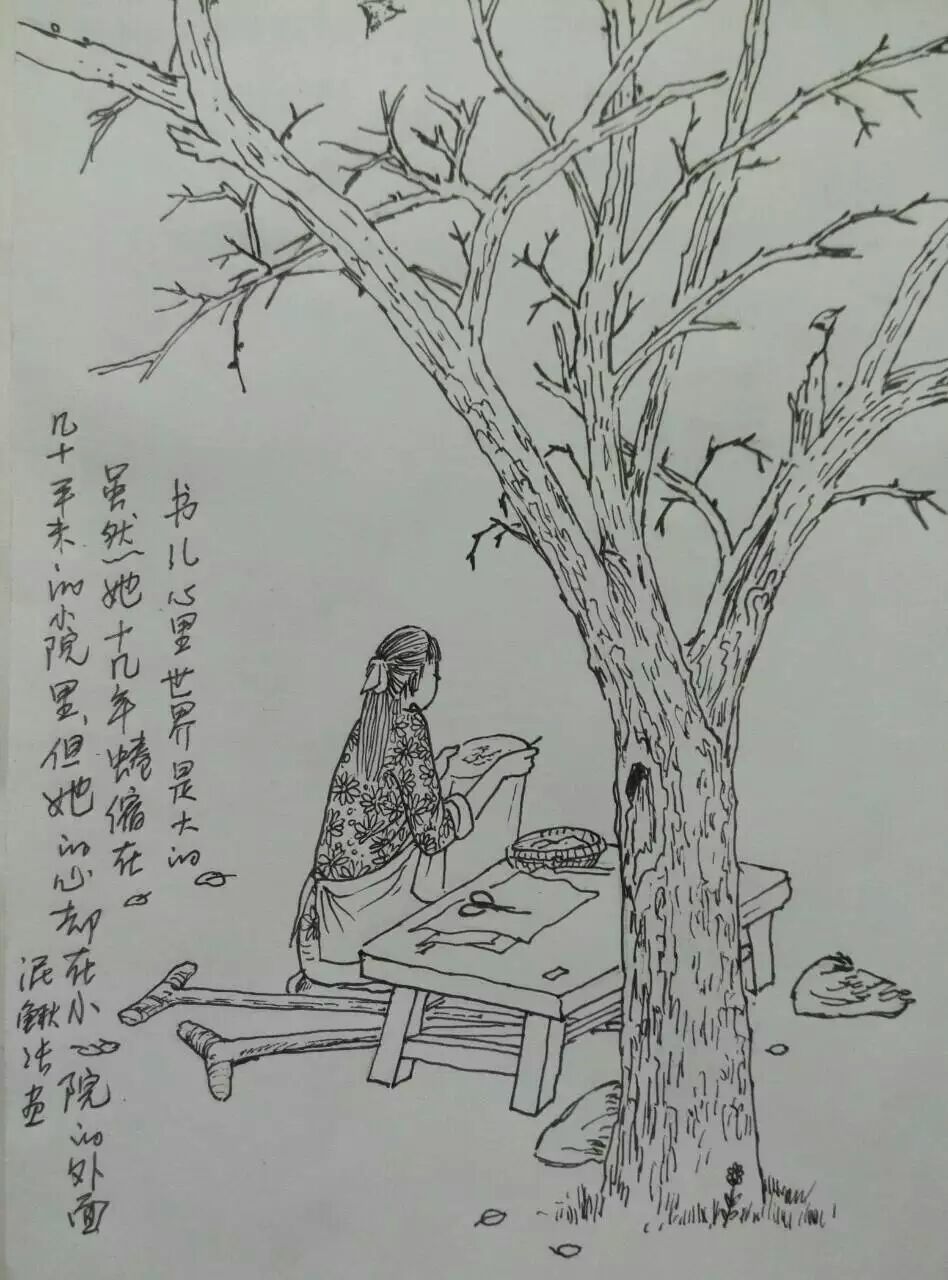 书儿心里世界是大的
虽然她十几年蜷缩在
几十平米的小院里、但她的心却在小院的外面
泥鳅张画